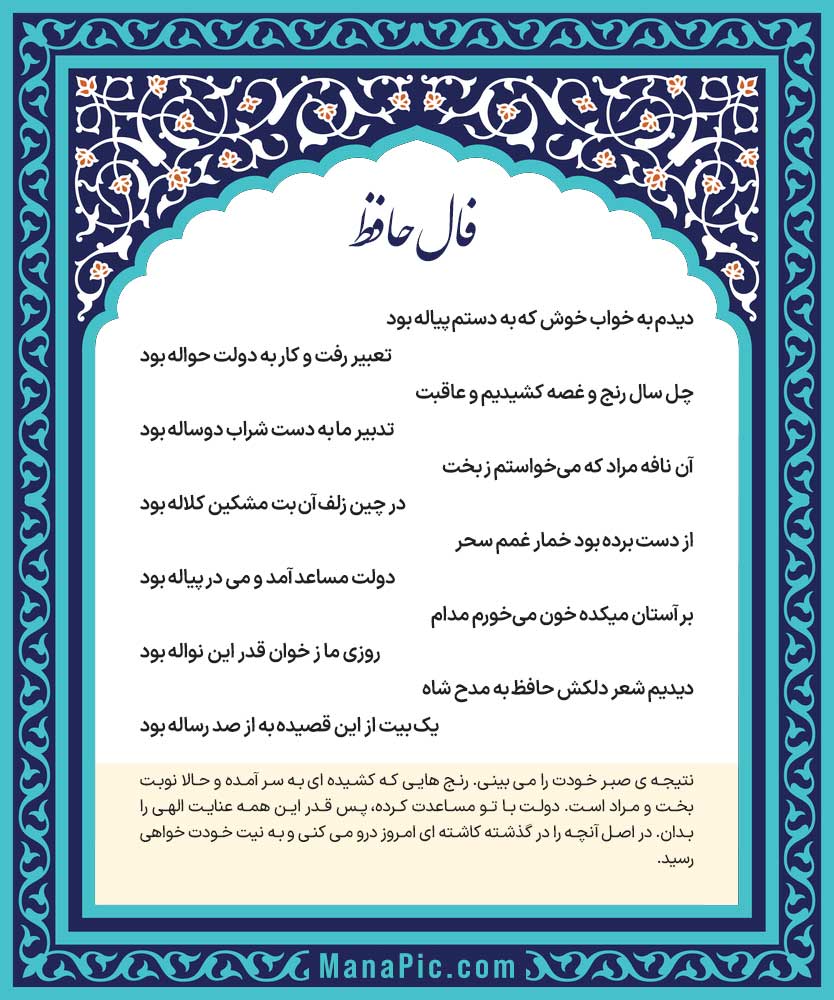 فال حافظ
دیدم به خواب خوش که به دستم پیاله بود
تعبیر رفت و کار به دولت حواله بود
چل سال رنج و غصه کشیدیم و عاقبت
تدبیر ما به دست شراب دوساله بود
آن نافه مراد که می‌خواستم ز بخت
در چین زلف آن بت مشکین کلاله بود
از دست برده بود خمار غمم سحر
دولت مساعد آمد و می در پیاله بود
بر آستان میکده خون می‌خورم مدام
روزی ما ز خوان قدر این نواله بود
دیدیم شعر دلکش حافظ به مدح شاه
یک بیت از این قصیده به از صد رساله بود
نتیجه ی صبر خودت را می بینی. رنج هایی که کشیده ای به سر آمده و حالا نوبت
بخت و مراد است. دولت با تو مساعدت کرده، پس قدر این همه عنایت الهی را
بدان. در اصل آنچه را در گذشته کاشته ای امروز درو می کنی و به نیت خودت خواهی
رسید.
ManaPic.com